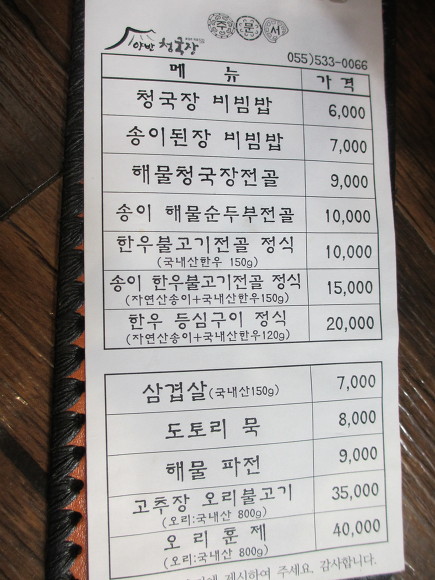 주 문 서
양반 청국장
055)533-0066
메 뉴 가 격
청국장 비빔밥 6,000
송이된장 비빔밥 7,000
해물청국장전골 9,000
송이 해물순두부전골 10,000
한우불고기전골 정식 10,000
(국내산한우 150g)
송이 한우불고기전골 정식 15,000
(자연산송이+국내산한우150g)
한우 등심구이 정식 20,000
(자연산송이+국내산한우120g)
삼겹살(국내산150g) 7,000
도토리 묵 8,000
해물 파전 9,000
고추장 오리불고기 35,000
(오리:국내산 800g)
오 리 훈 제 40,000
(오리:국내산 800g)
제시하여 주세요. 감사합니다.